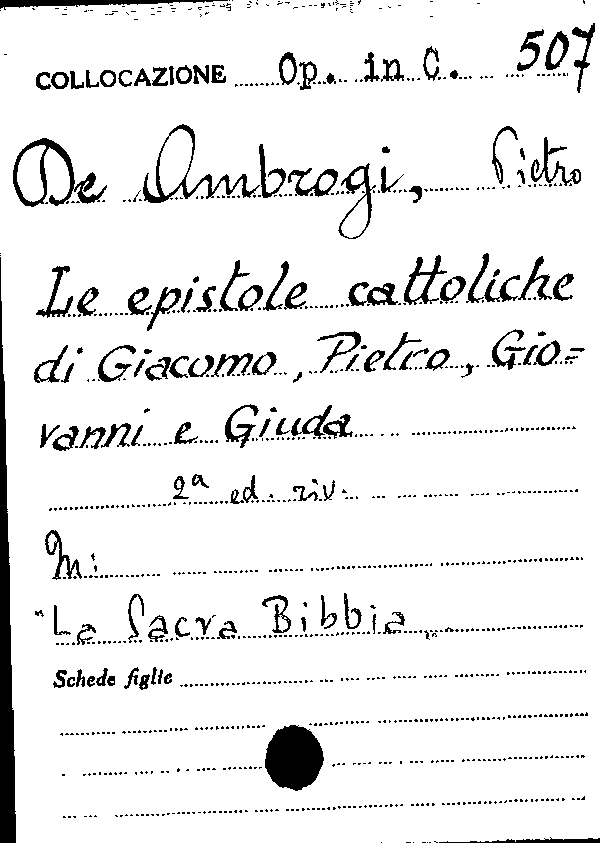 COLLOCAZIONE Op. in C. 507
De Ambrogi, Pietro
Le epistole cattoliche
di Giacomo, Pietro, Gio=
vanni e Giuda
2ª ed. riv.
In:
"La Sacra Bibbia"
Schede figlie